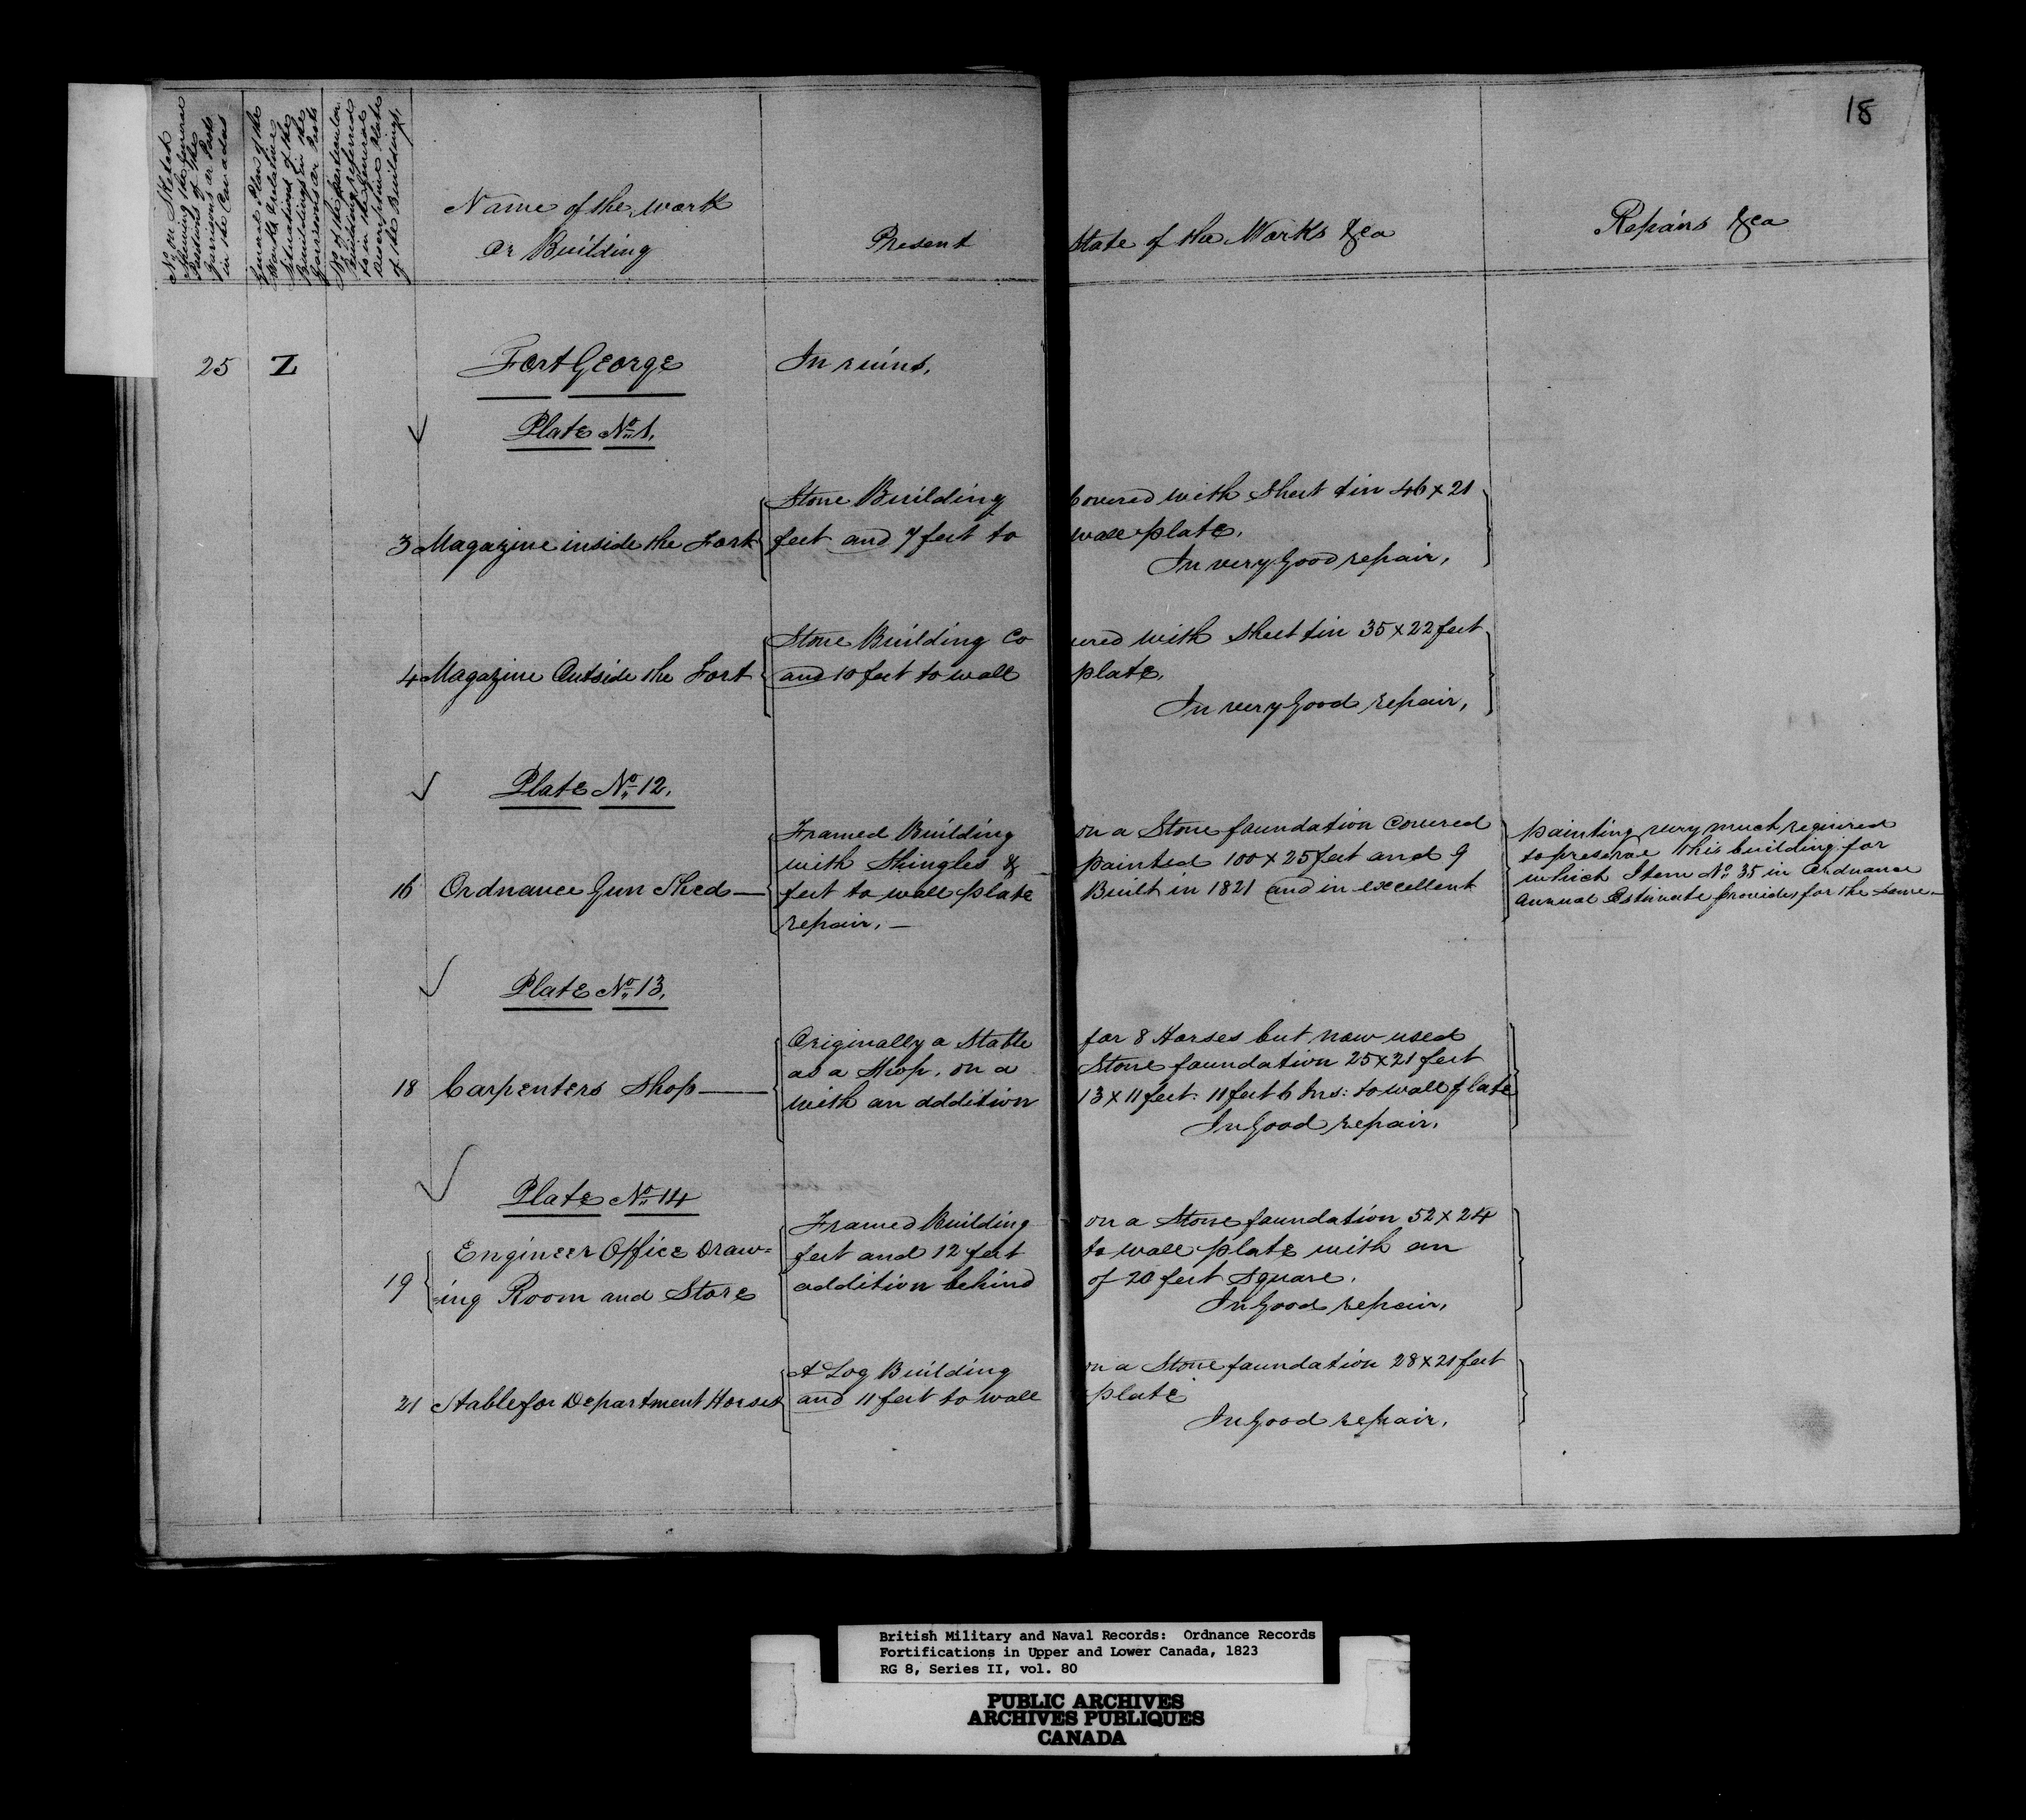 18
No. on Sketch
shewing the general
Position of the
Garrisons or Posts
in the Canadas
General Plan of the
Works relative
Situations of the
Buildings in the
Garrisons or Posts
No. of the particular
Building referred
to in the General
Descriptive Plate
of the Buildings.
Name of the work
or Building
Present State of the Works &ca
Repairs &ca
25 Z Fort George In ruins.
Plate No. 1.
Stone Building Covered with Sheet tin 46 x 21
3 Magazine inside the Fort feet and 7 feet to wall plate.
In very Good repair.
Stone Building Covered with sheet tin 35 x 22 feet
4 Magazine Outside the Fort and 10 feet to wall plate.
In very Good repair.
Plate No. 12.
Framed Building on a Stone foundation Covered
with Shingles & painted 100 x 25 feet and 9
16 Ordnance Gun Shed — feet to wall plate Built in 1821 and in excellent
repair. —
painting very much required
to preserve this building for
which Item No. 35 in Ordnance
Annual Estimate provides for the same —
Plate No. 13.
Originally a Stable for 8 Horses but now used
as a Shop, on a Stone foundation 25 x 21 feet
18 Carpenters Shop — with an addition 13 x 11 feet: 11 feet 6 Ins: to wall plate
In Good repair.
Plate No. 14
Framed Building on a Stone foundation 52 x 24
Engineer Office Draw= feet and 12 feet to wall plate with an
19 =ing Room and Store addition behind of 20 feet square.
In Good repair.
A Log Building on a Stone foundation 28 x 21 feet
21 Stable for Department Horses and 11 feet to wall plate
In Good repair.
British Military and Naval Records: Ordnance Records
Fortifications in Upper and Lower Canada, 1823
RG 8, Series II, vol. 80
PUBLIC ARCHIVES
ARCHIVES PUBLIQUES
CANADA